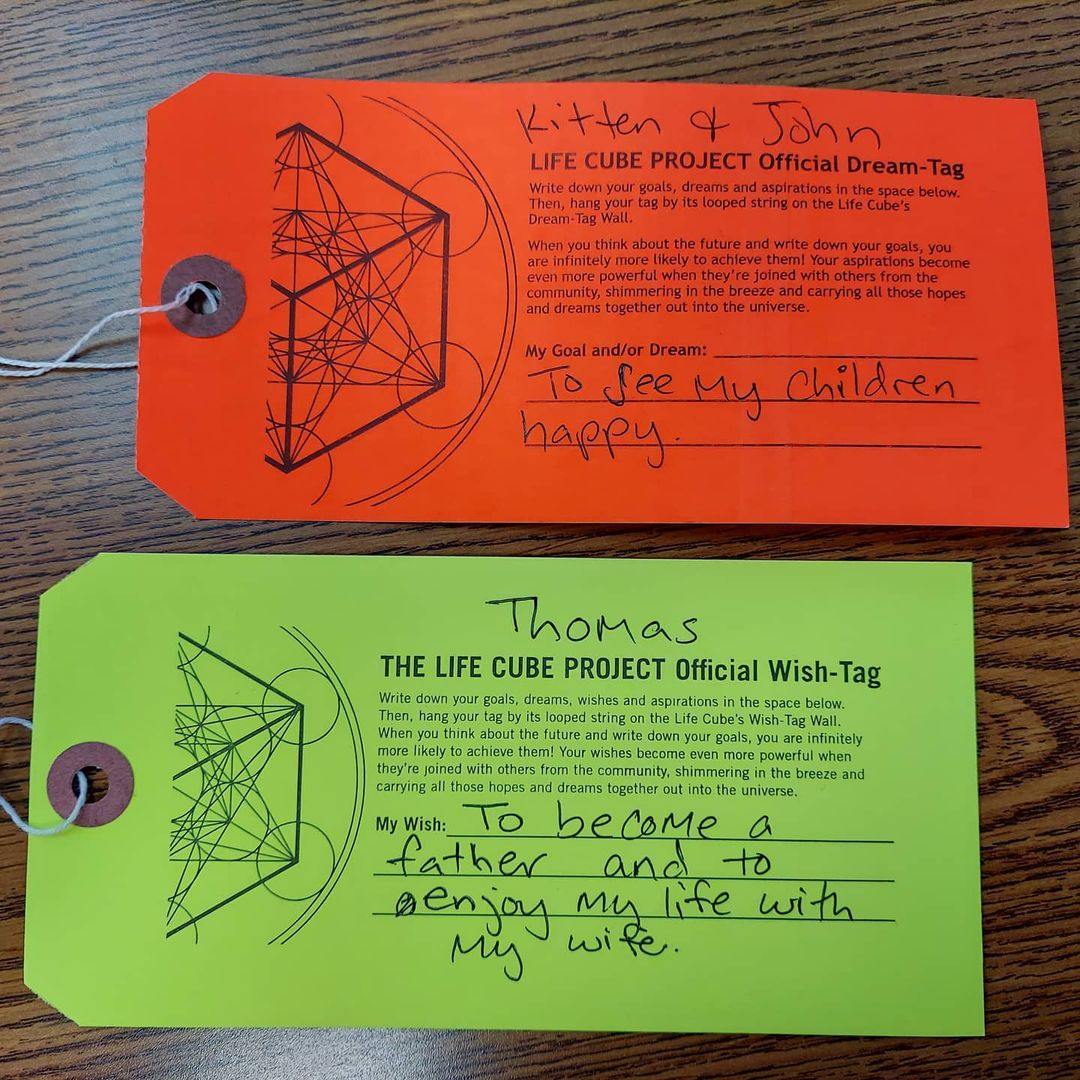 Kitten & John
LIFE CUBE PROJECT Official Dream-Tag
Write down your goals, dreams and aspirations in the space below.
Then, hang your tag by its looped string on the Life Cube's
Dream-Tag Wall.
When you think about the future and write down your goals, you
are infinitely more likely to achieve them! Your aspirations become
even more powerful when they're joined with others from the
community, shimmering in the breeze and carrying all those hopes
and dreams together out into the universe.
My Goal and/or Dream:
To See My Children
happy.
Thomas
THE LIFE CUBE PROJECT Official Wish-Tag
Write down your goals, dreams, wishes and aspirations in the space below.
Then, hang your tag by its looped string on the Life Cube's Wish-Tag Wall.
When you think about the future and write down your goals, you are infinitely
more likely to achieve them! Your wishes become even more powerful when
they're joined with others from the community, shimmering in the breeze and
carrying all those hopes and dreams together out into the universe.
My Wish: To become a
father and to
enjoy my life with
My wife.